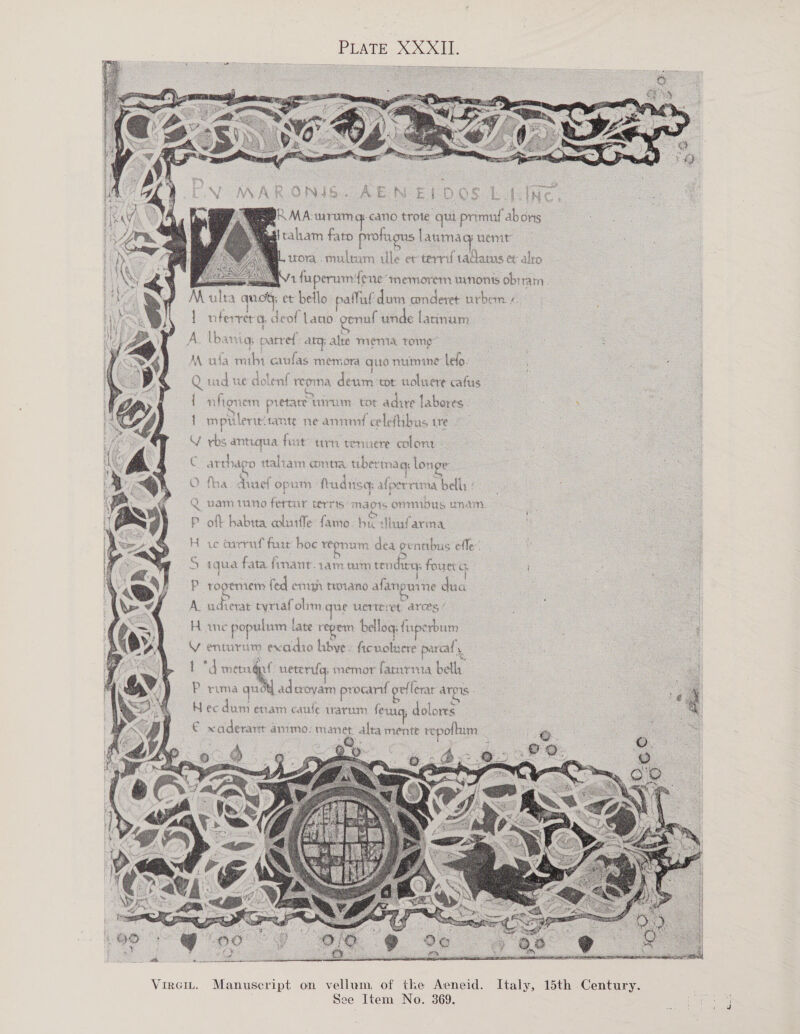 PLATE XXXII.
P. V MARONIS. AENEIDOS L. I. INC.
ARMA uirumq; cano troie qui primus ab oris
Italiam fato profugus lauinaq; uenit
Litora. multum ille et terris iactatus et alto
Vi superum seue memorem iunonis ob iram
Multa quoq; et bello passus dum conderet urbem
Inferretq; deos latio genus unde latinum
Albaniq; patres atq; alte menia rome
Musa mihi causas memora quo numine leso
Quid ue dolens regina deum tot uoluere casus
Insignem pietate uirum tot adire labores
Impulerit: tante ne animis celestibus ire
Vrbs antiqua fuit tirii tenuere coloni
Carthago italiam contra tiberinaq; longe
Ostia diues opum studiisq; asperrima belli
Quam iuno fertur terris magis omnibus unam
Post habita coluisse samo. hic illius arma
Hic currus fuit hoc regnum dea gentibus esse
Siqua fata sinant. iam tum tenditq; fouetq;
Progeniem sed enim troiano a sanguine duci
Audierat tyrias olim que uerteret arces
Hinc populum late regem belloq; superbum
Venturum exadio libye. sic uoluere parcas
Id metuens ueterisq; memor saturnia belli
Prima quod ad troyam procaris gesserat argis
Nec dum etiam cause irarum seuiq; dolores
Exciderant animo. manet alta mente repostum
VIRGIL. Manuscript on vellum of the Aeneid. Italy, 15th Century.
See Item No. 369.